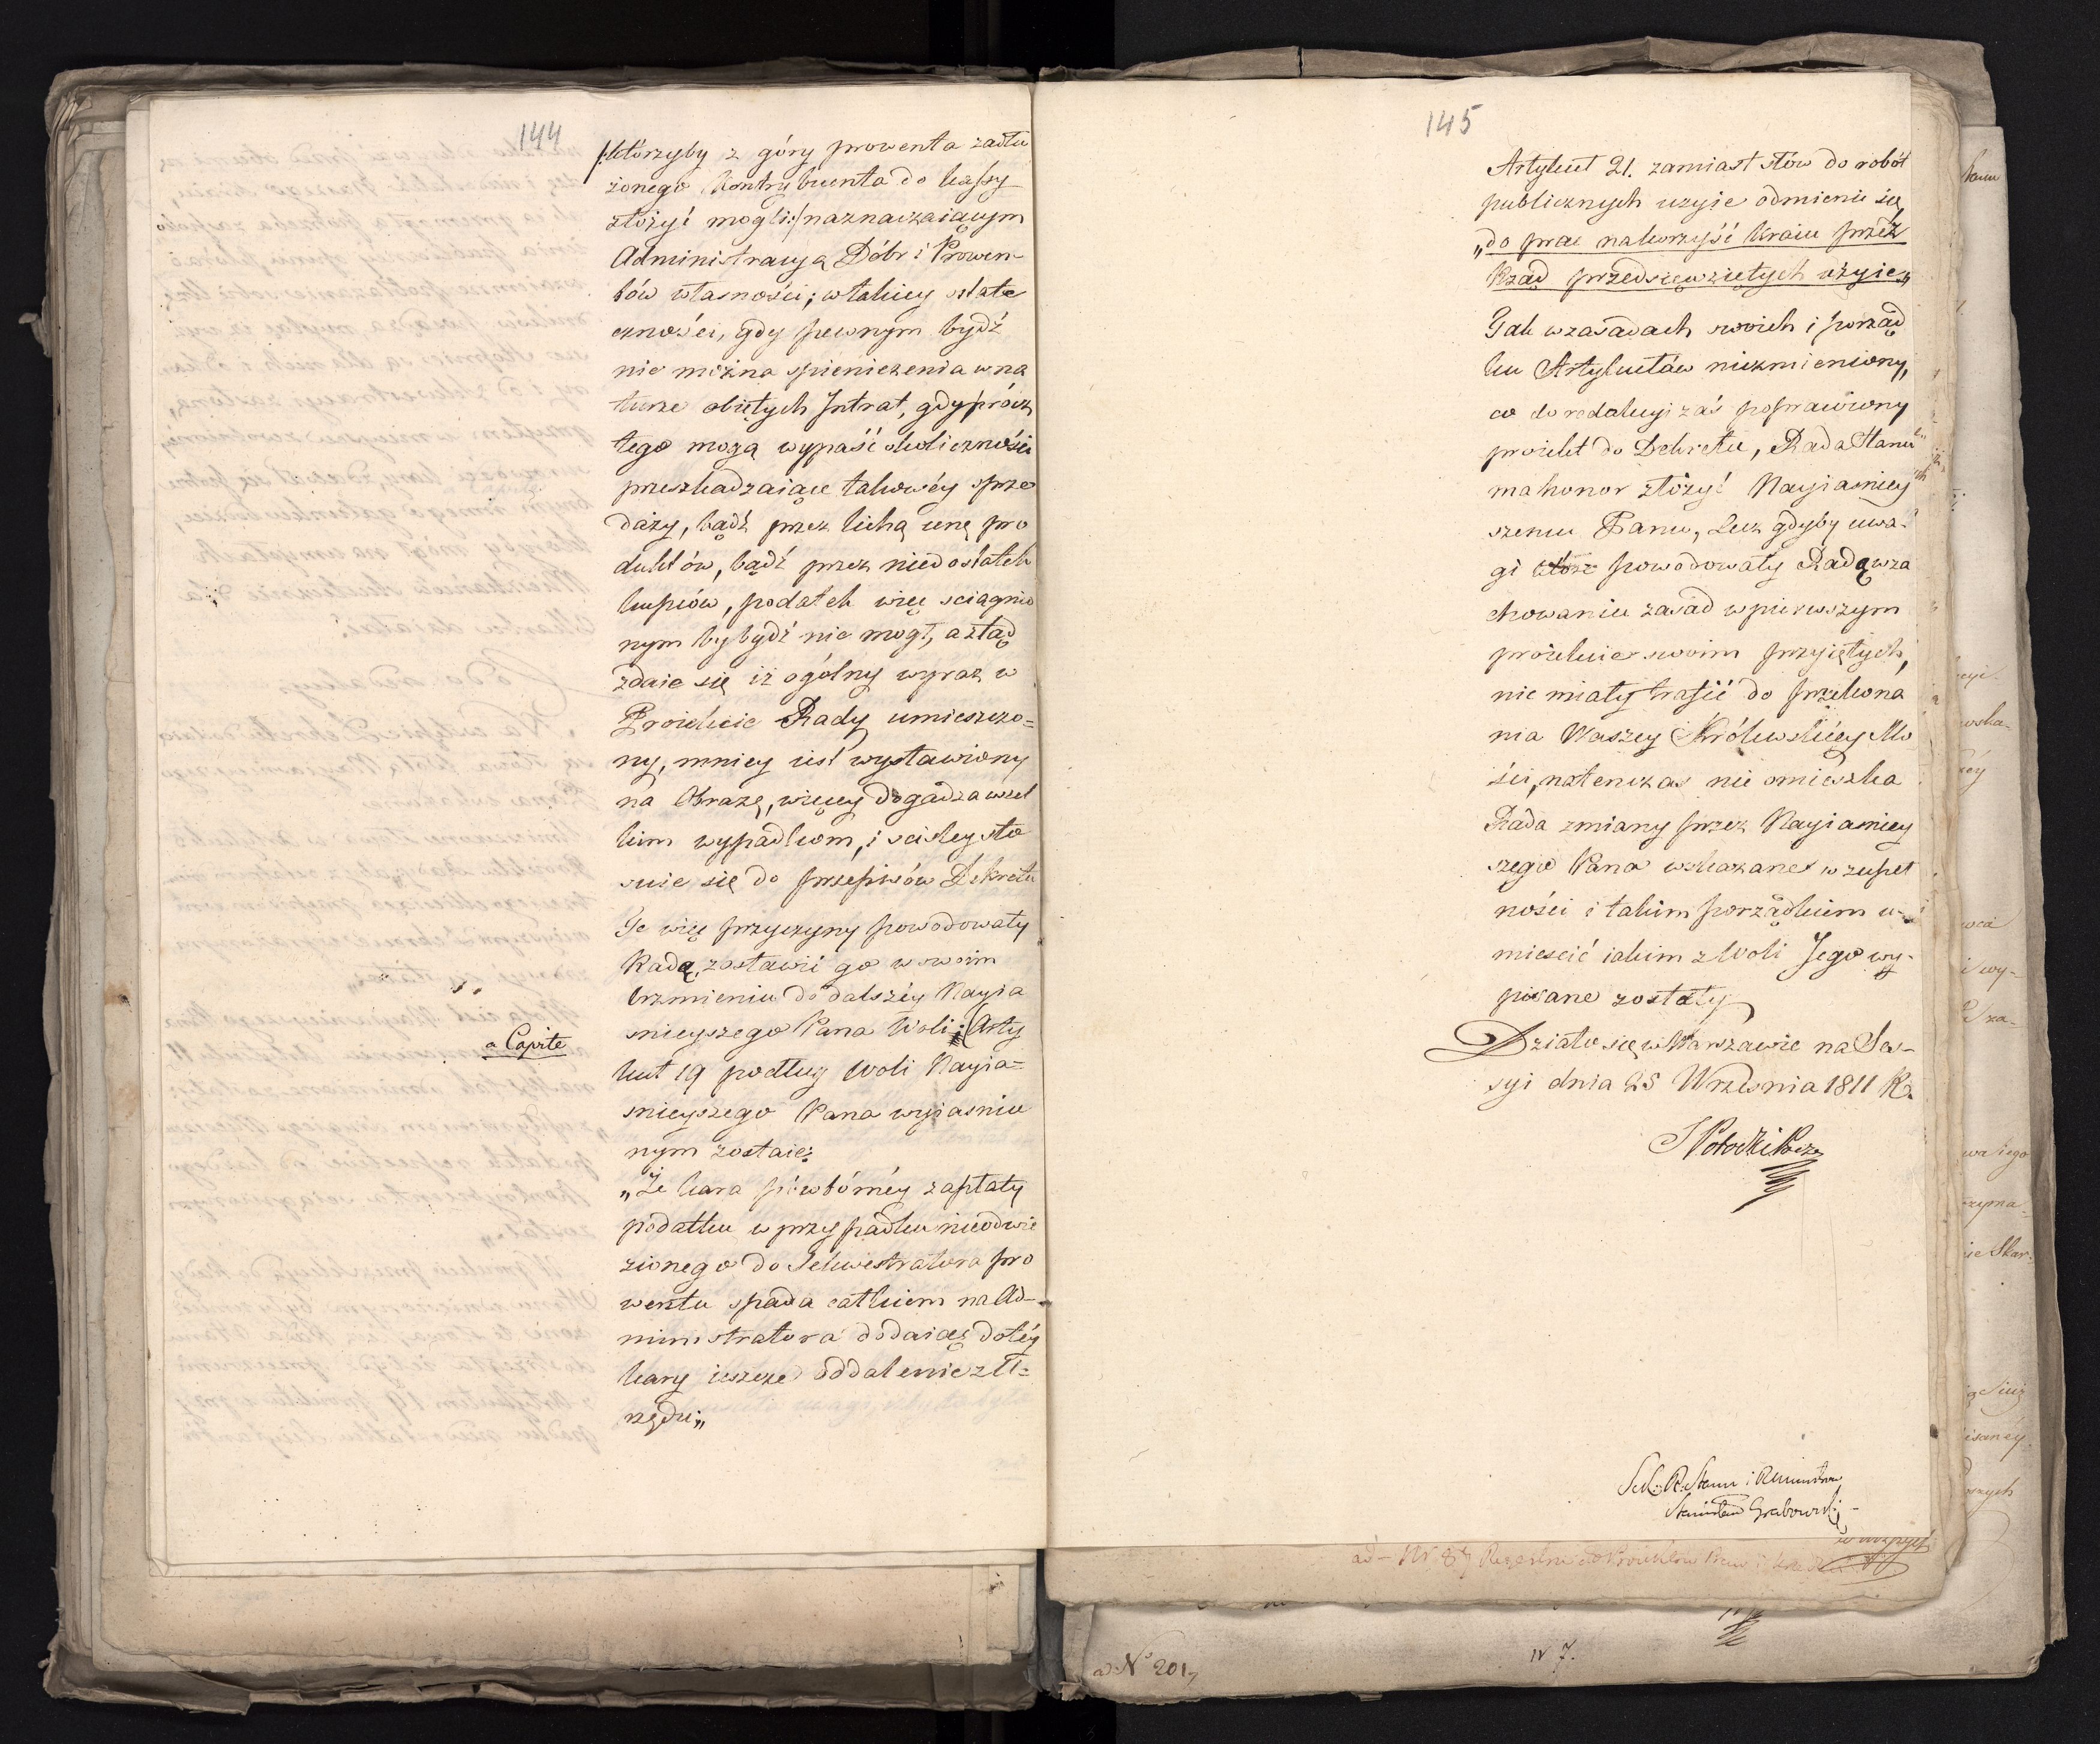 144
/:którzyby z góry prowenta zadłu
żonego Kontrybuenta do kassy
złożyć mogli:/ naznaczaiącym
Administracyą Dóbr i Prowen-
tów własności; w takiey ostate
czności, gdy pewnym bydź
nie można spieniężenia w na
turze obiętych Intrat, gdy prócz
tego mogą wypaść okoliczności
przeszkadzaiące takowéy sprze
daży, bądź przez lichą cenę pro
duktów, bądź przez niedostatek
kupców, podatek więc sciągnio
nym by bydź nie mogł, a ztąd
zdaie się iż ogólny wyraz w
Proiekcie Rady umieszczo=
ny, mniey iest wystawiony
na Obrazę, więcey dogadza wszel
kim wypadkom, i scisley sto
suie się do przepisów Dekretu
Te więc przyczyny powodowały
Radę, zostawić go w swoim
brzmieniu do dalszéy Nayia
snieyszego Pana Woli; Arty
a Capite
kuł 19 podług Woli Nayia=
snieyszego Pana wyiasnio
nym zostaie:
„Że kara półwtórnéy zapłaty
podatku w przypadku nieodwie
zionego do Sekwestratora pro
wentu spada całkiem na Ad-
ministratora dodaiąc do téy
kary ieszcze oddalenie z U=
rzędu;„
145
Artykuł 21. zamiast słów do robót
publicznych użyie odmieni się
„do prac na korzyść kraiu przez
Rząd przedsięwziętych użyie„
Tak w zasadach swoich i porząd
ku Artykułów niezmieniony,
co do redakcyi zaś poprawiony
proiekt do Dekretu, Rada Stanu
ma honor złożyć Nayiasniey
szemu Panu, Lecz gdyby uwa-
gi które powodowały Radą w za
chowaniu zasad w pierwszym
proiekcie swoim przyiętych,
nie miały trafić do przekona
nia Waszey Królewskiéy Mo
ści, natenczas nie omieszka
Rada zmiany przez Nayiasniey
szego Pana wskazane w zupeł
ności i takim porządkiem u-
mieścić iakim z Woli Jego wy-
pisane zostały
Działo się w Warszawie na Ses-
syi dnia 25 Września 1811 R.
S Potocki Prezes
Sek: R. Stanu i R. Ministrow
Stanisław Grabowski
ad - Nr 87
ad N 201,
N 7.